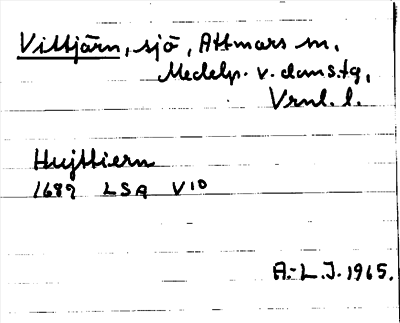 Vittjärn, sjö, Attmars sn,
Medelp. v. doms.tg,
Vrnl. l.
Hujttiern
1689 LSA V10
A.-L.J. 1965.